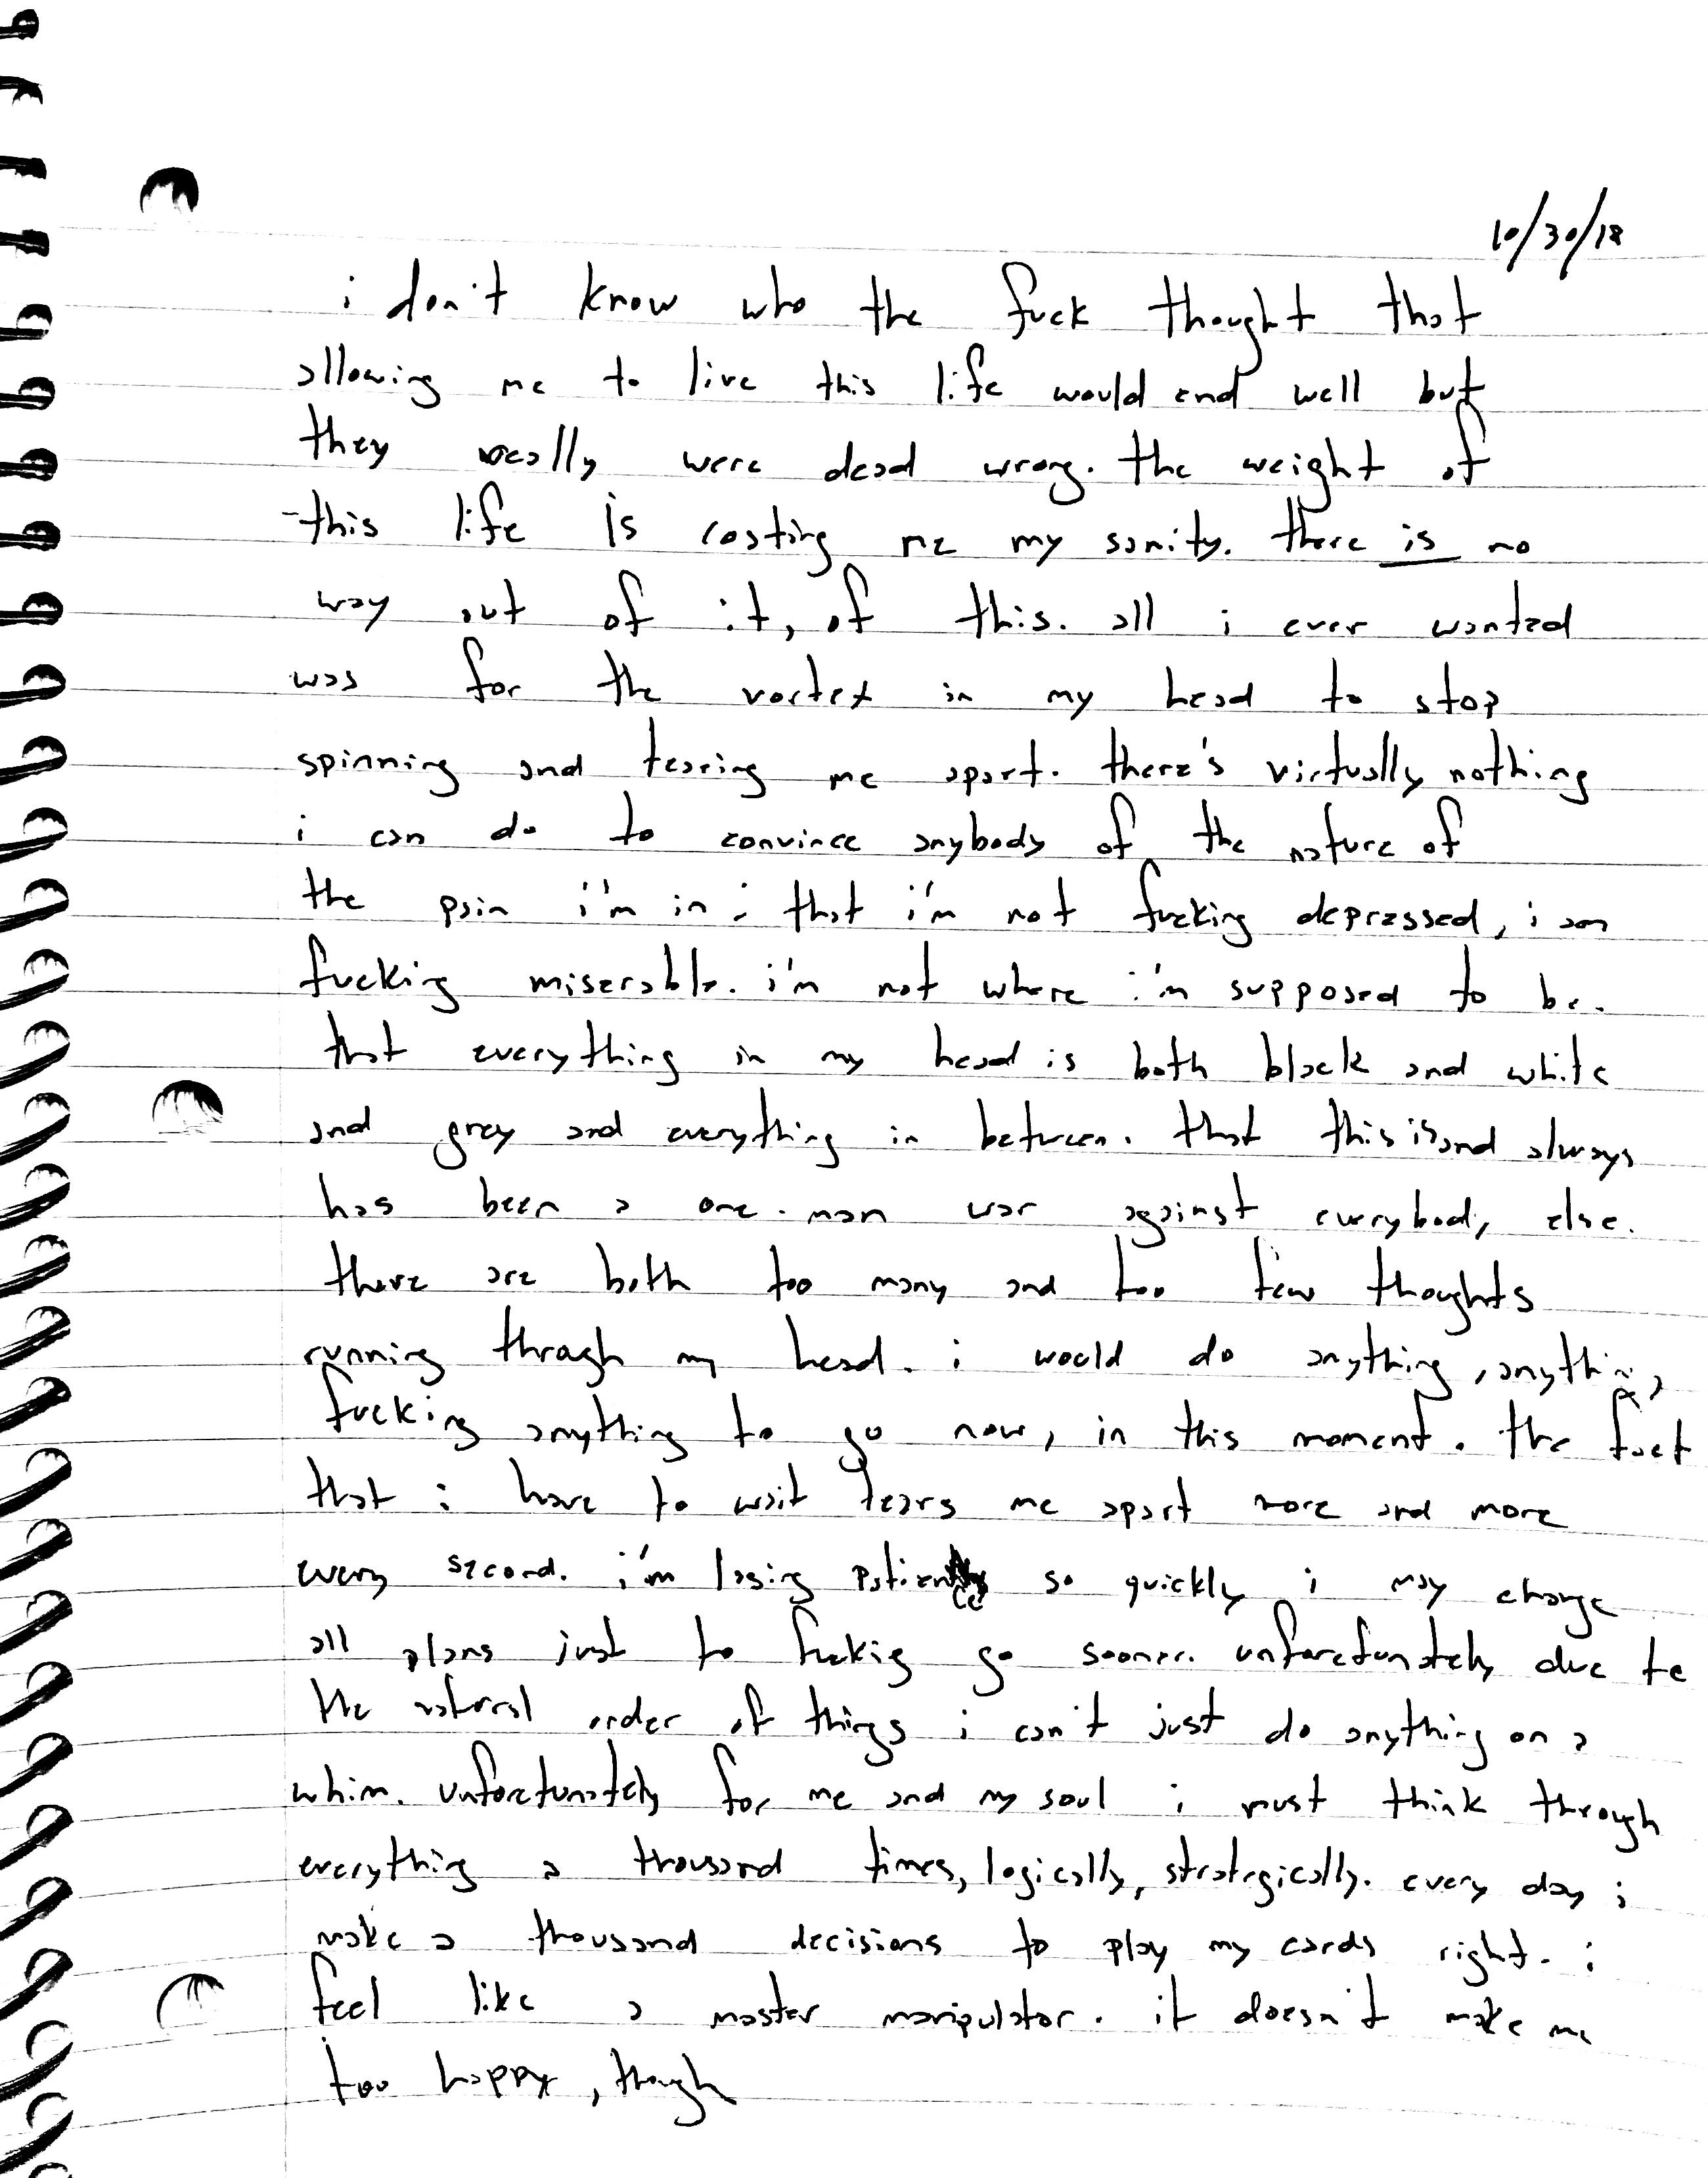 10/30/18
i don't know who the fuck thought that
allowing me to live this life would end well but
they really were dead wrong. the weight of
this life is costing me my sanity. there is no
way out of it, of this. all i ever wanted
was for the vortex in my head to stop
spinning and tearing me apart. there's virtually nothing
i can do to convince anybody of the nature of
the pain i'm in: that i'm not fucking depressed, i am
fucking miserable. i'm not where i'm supposed to be.
that everything in my head is both black and white
and grey and everything in between. that this is and always
has been a one-man war against everybody else.
there are both too many and too few thoughts
running through my head. i would do anything, anything,
fucking anything to go now, in this moment. the fact
that i have to wait tears me apart more and more
every second. i'm losing patience so quickly i may change
all plans just to fucking go sooner. unfortunately due to
the natural order of things i can't just do anything on a
whim. unfortunately for me and my soul i must think through
everything a thousand times, logically, strategically. every day i
make a thousand decisions to play my cards right. i
feel like a master manipulator. it doesn't make me
too happy, though